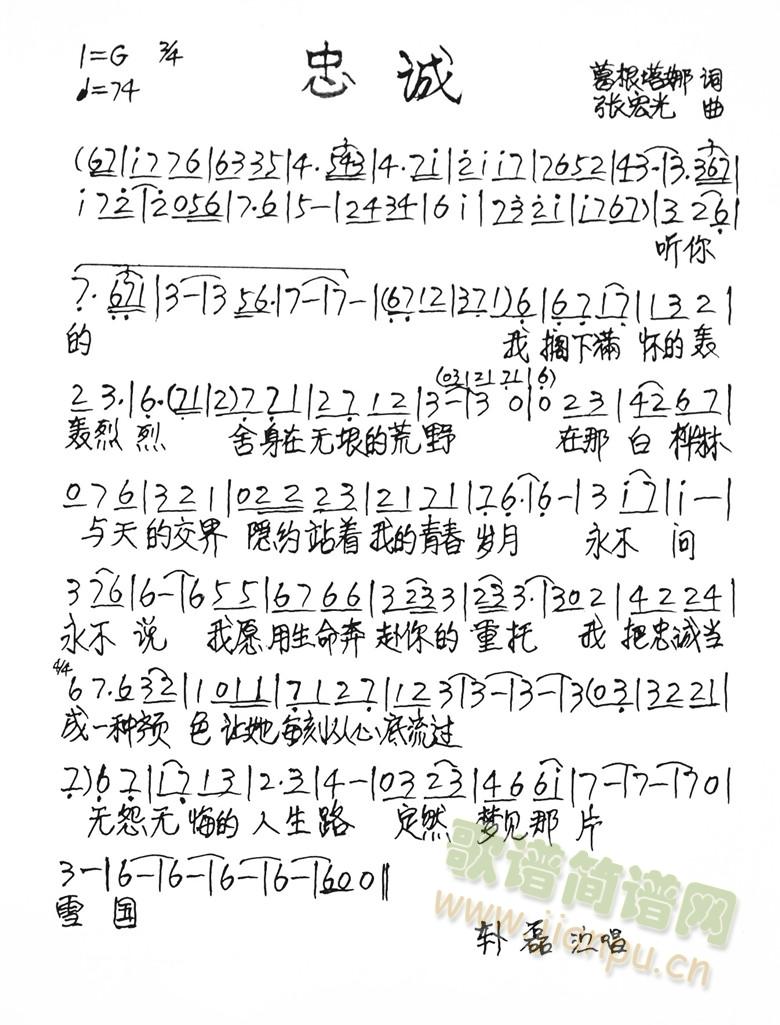 1=G 3/4
忠诚
♩=74
葛根塔娜 词
张宏光 曲
(67|i776|6335|4·543|4·7i|2ii7|7652|43-|3·367|
i72|2056|7·6|5-|2434|6i|732i|i767)|326|
听你
7·671|3-|356·|7-|7-|(6712|371)6|6717|1321|
的 我捆下满怀的轰
(03|21 21|6)
23·|6·(71|2)771|2712|3-|30|023|4267|
轰烈烈 舍身在无垠的荒野 在那白桦林
076|321|02223|2171|76·|6-|3i7|i-|
与天的交界 隐约站着我的青春岁月 永不问
376|6-|655|6766|3233|233·|302|4224|
永不说 我愿用生命奔赴你的重托 我把忠诚当
4/4
67·632|1011|7127|123|3-|3-|3(03|3221|
成一种颜色让她每刻从心底流过
7)67|1713|2·3|4-|0323|466i|7-|7-|70|
无怨无悔的人生路 定然梦见那片
3-|6-|6-|6-|6-|600‖
雪国
歌谱简谱网
www.jianpu.cn
朴磊 演唱